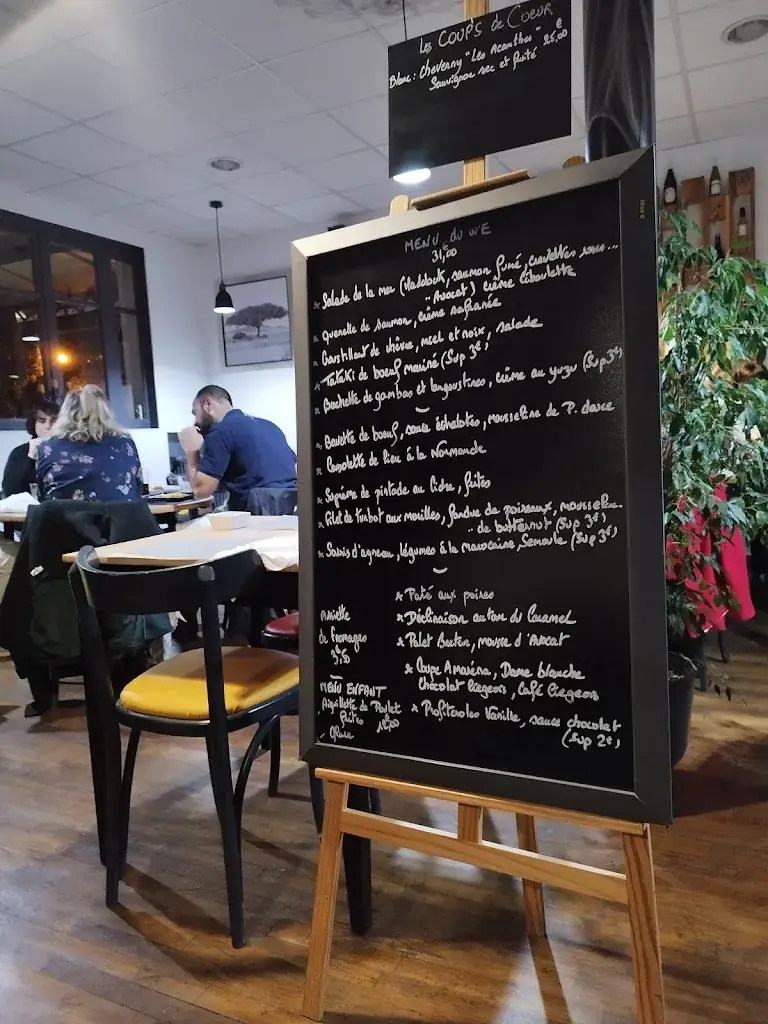 Les Coups de Coeur
Blanc : Cheverny "Les Acanthes" 25,00 €
Sauvignon sec et fruité
MENU du WE
31,00
* Salade de la mer (Haddock, saumon fumé, crevettes roses...
"Avocat) crème ciboulette
* quenelle de saumon, crème safranée
* Croustillant de chèvre, miel et noix, salade
* Tataki de boeuf mariné (Sup 3€)
* Brochette de gambas et langoustines, crème au yuzu (Sup 3€)
* Bavette de boeuf, sauce échalotes, mousseline de P. douce
* Cassolette de lieu à la Normande
* Suprême de pintade au cidre, frites
* Filet de turbot aux morilles, fondue de poireaux, mousseline
" de butternut (Sup 3€)
* Souris d'agneau, légumes à la marocaine, Semoule (Sup 3€)
* Paté aux poires
* Déclinaison autour du Caramel
* Palet Breton, mousse d'Avocat
* Coupe Amaréna, Dame blanche
Chocolat liégeois, Café liégeois
* Profiteroles Vanille, sauce chocolat
(Sup 2€)
Assiette
de fromages
9,50
MENU ENFANT
Aiguillette de Poulet
Frites
Glace